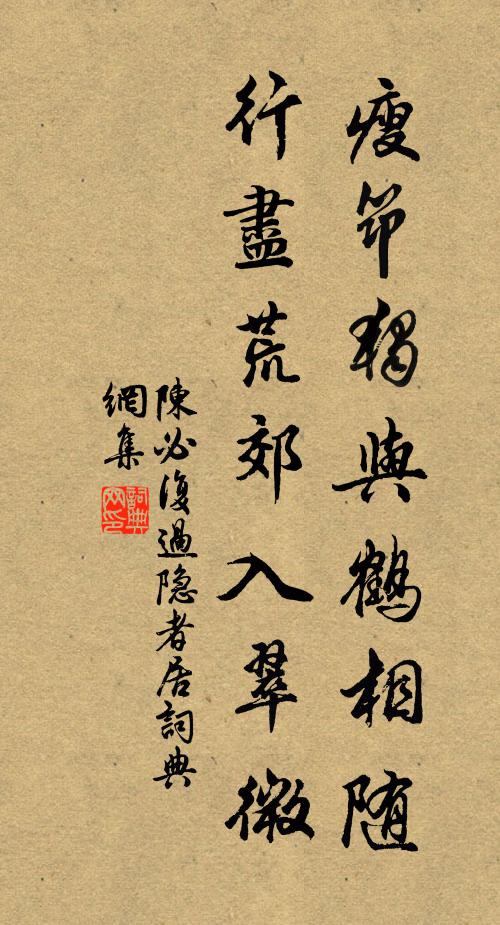 瘦筇獨與鶴相随
行盡荒郊入翠微
陳必復過隐者居詞典
網集
詞典網印